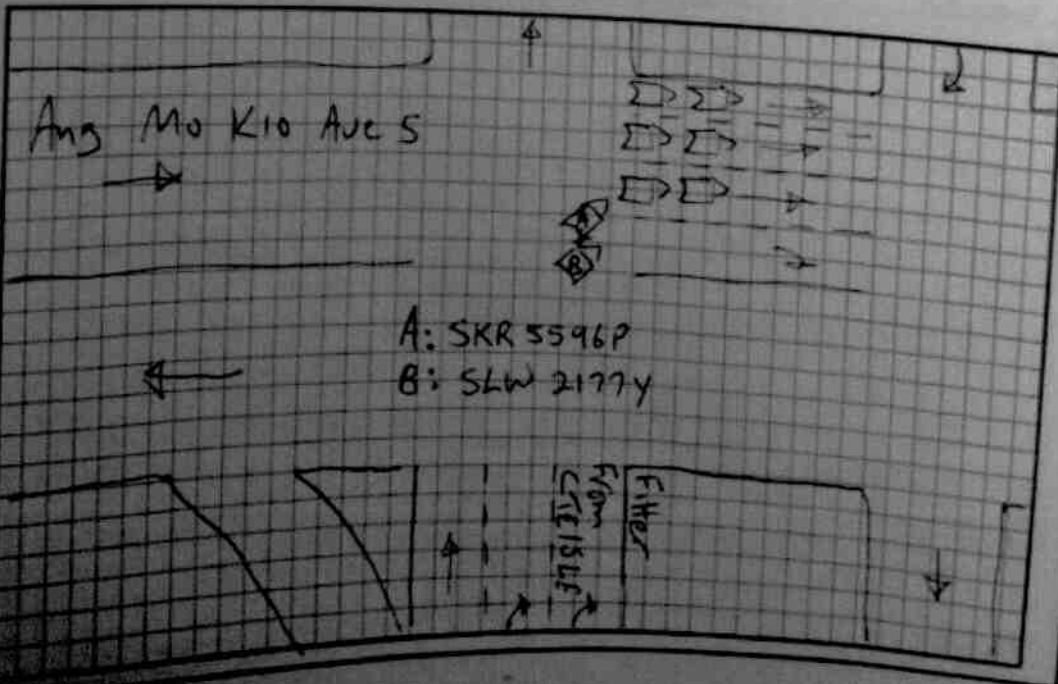 Ang Mo Kio Ave 5
A
B
A: SKR 5596P
B: SLW 2177Y
Filter
From